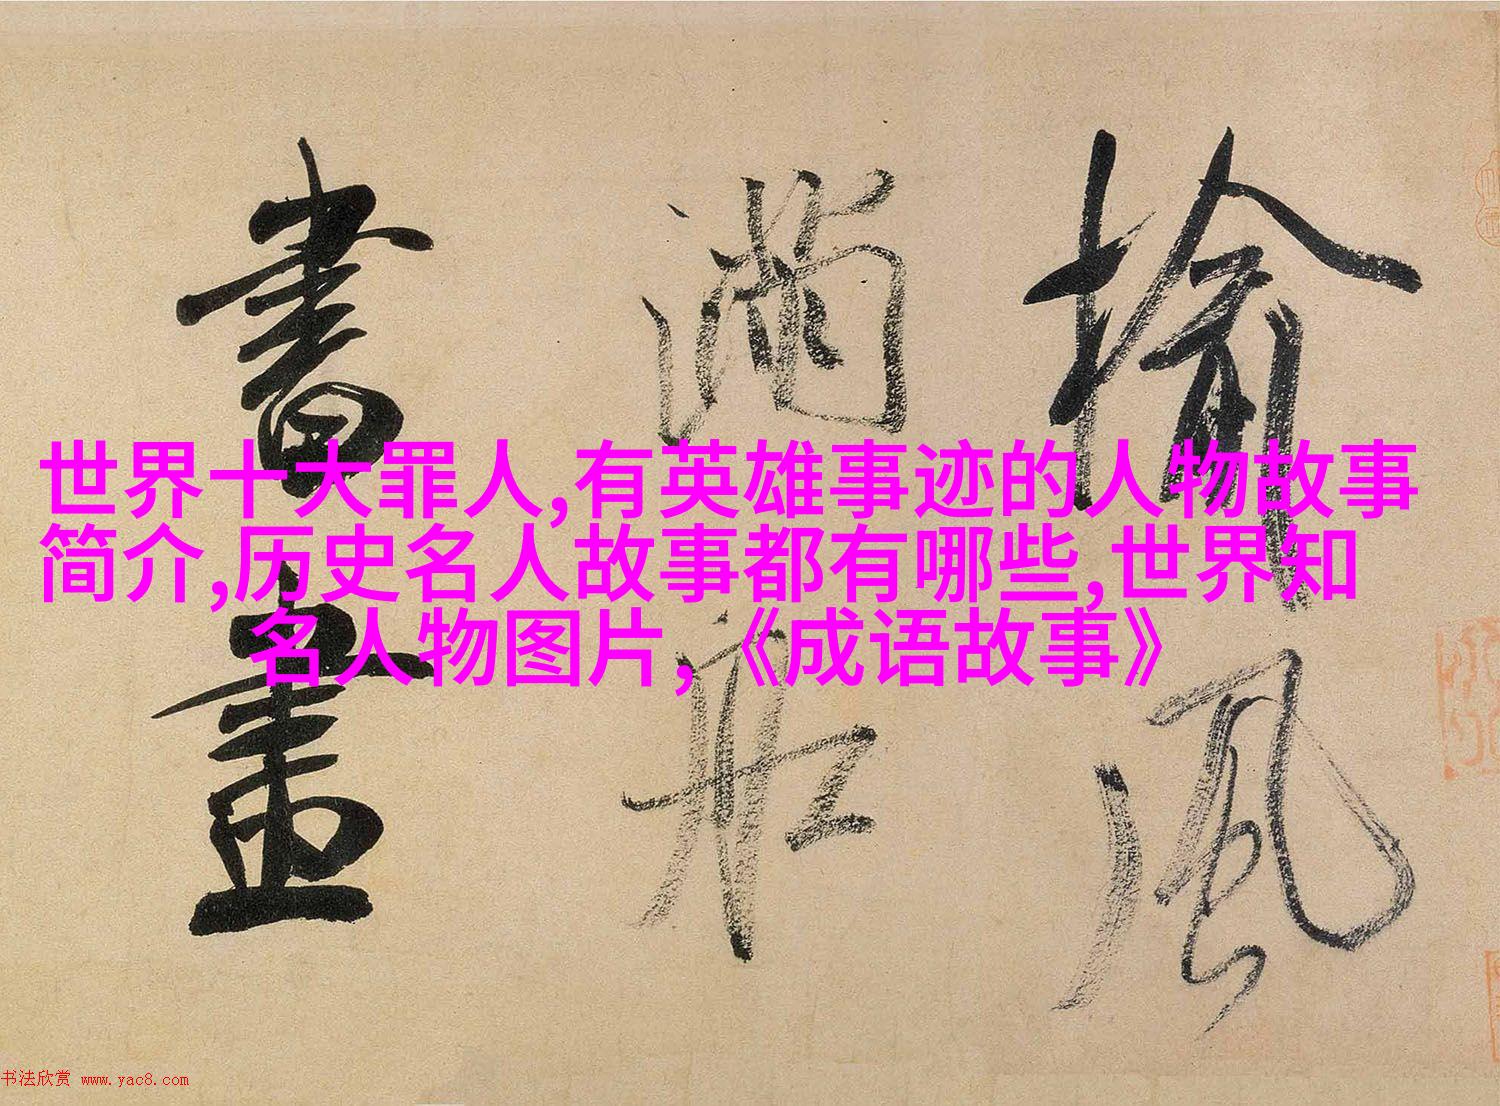 榆風
滿船
書畫
世界十大罪人,有英雄事迹的人物故事
简介,历史名人故事都有哪些,世界知
名人物图片,《成语故事》
书法欣赏 www.yac8.com